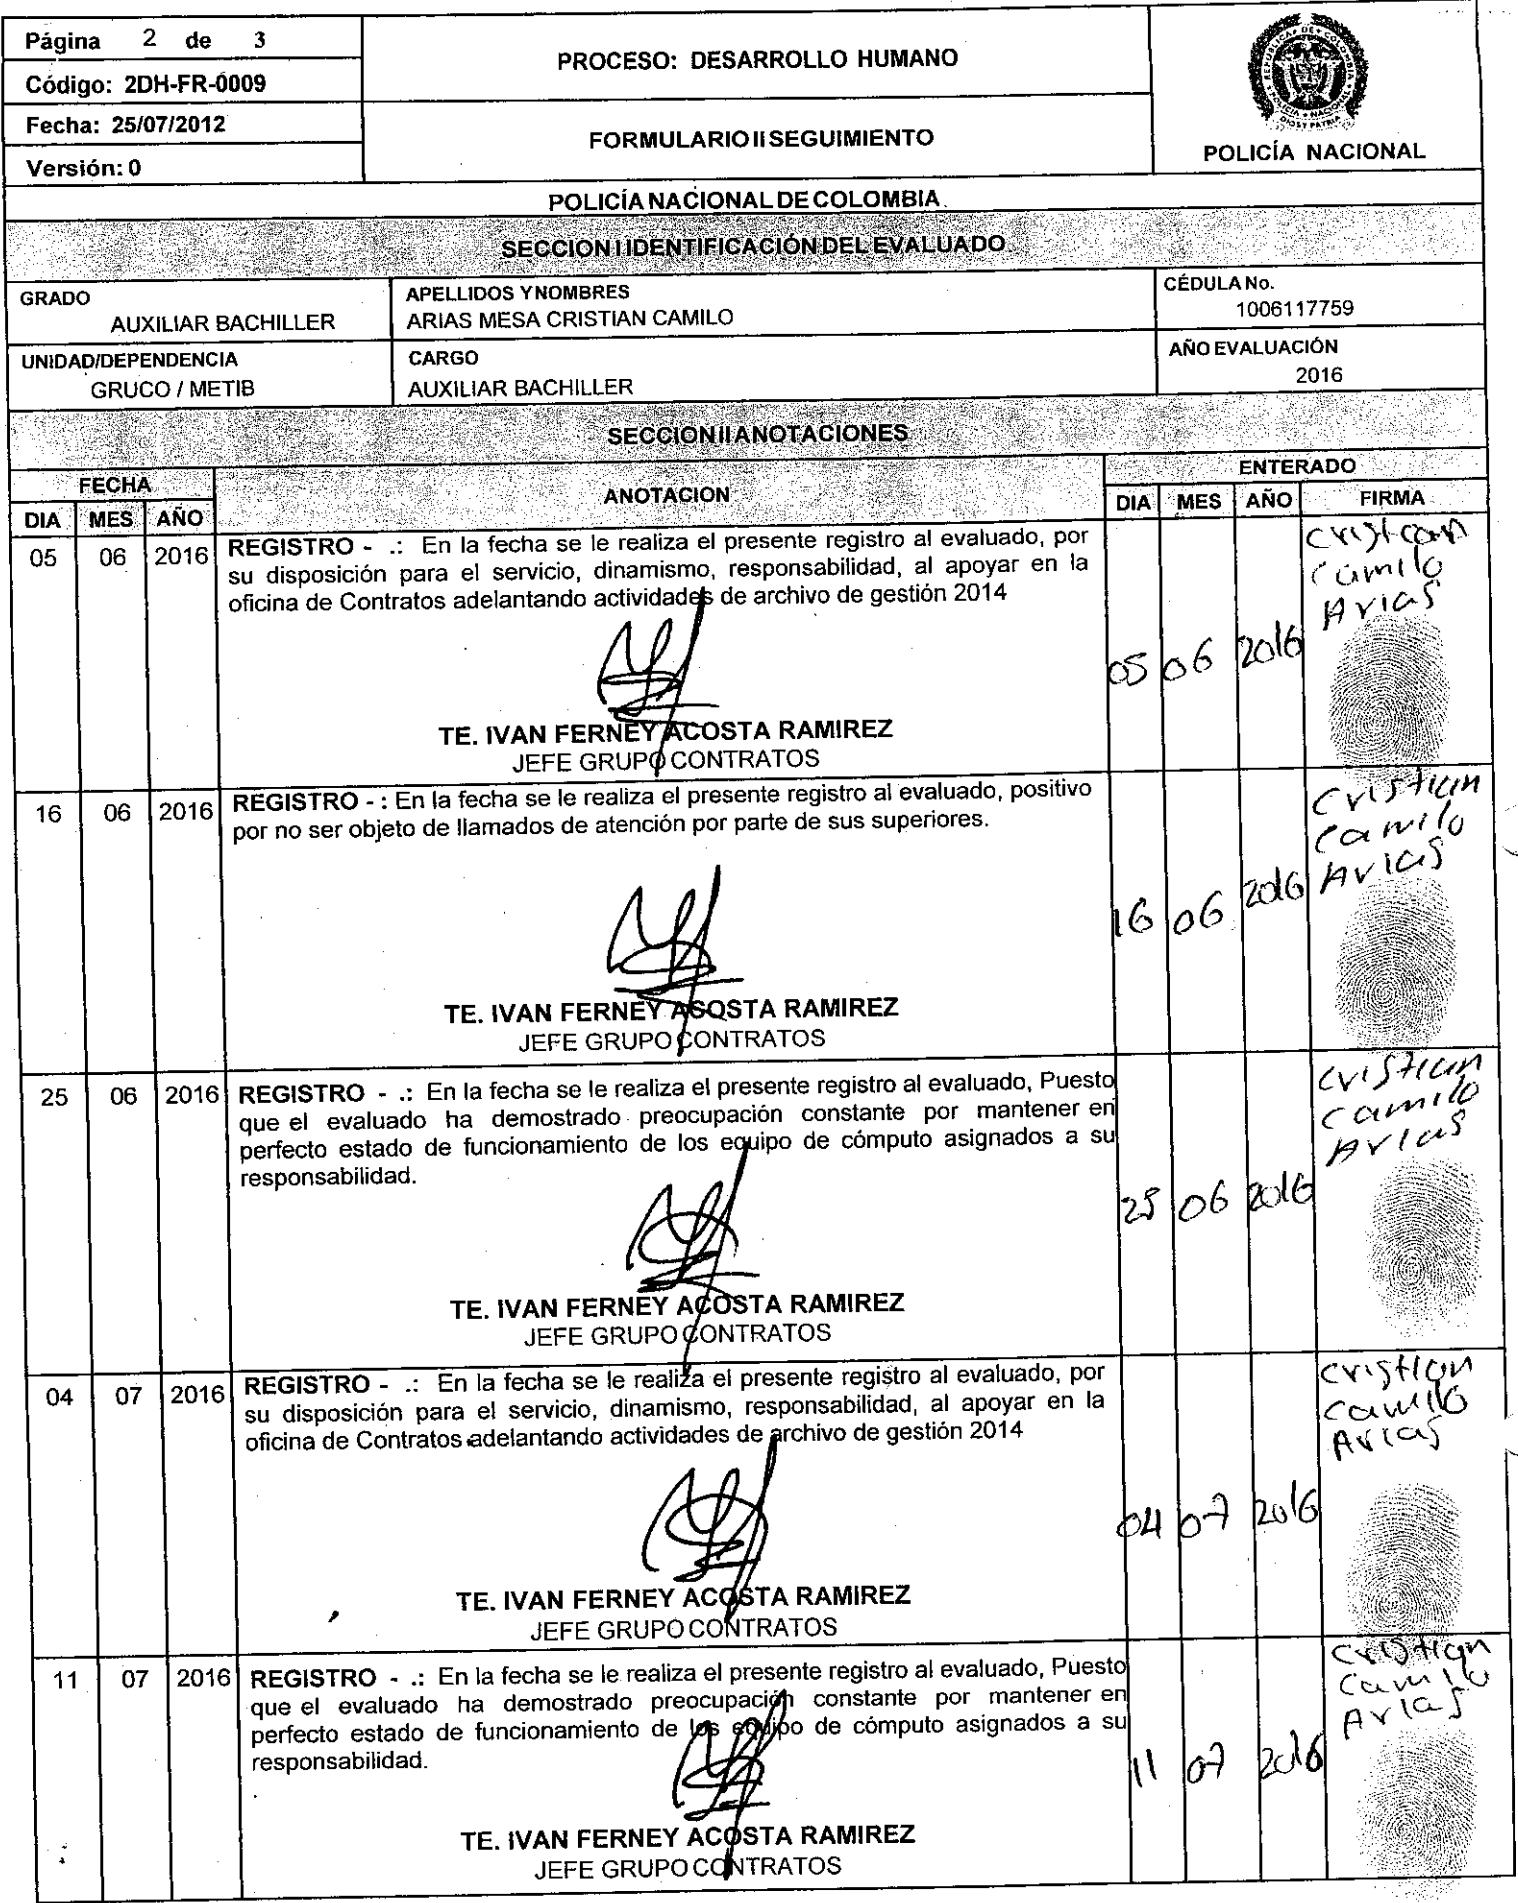 Página 2 de 3
Código: 2DH-FR-0009
Fecha: 25/07/2012
Versión: 0
PROCESO: DESARROLLO HUMANO
FORMULARIO II SEGUIMIENTO
POLICÍA NACIONAL
POLICÍA NACIONAL DE COLOMBIA
SECCION I IDENTIFICACIÓN DEL EVALUADO
GRADO
AUXILIAR BACHILLER
APELLIDOS Y NOMBRES
ARIAS MESA CRISTIAN CAMILO
CÉDULA No.
1006117759
UNIDAD/DEPENDENCIA
GRUCO / METIB
CARGO
AUXILIAR BACHILLER
AÑO EVALUACIÓN
2016
SECCION II ANOTACIONES
FECHA
ANOTACION
ENTERADO
DIA MES AÑO
DIA MES AÑO FIRMA
05 06 2016
REGISTRO - .: En la fecha se le realiza el presente registro al evaluado, por
su disposición para el servicio, dinamismo, responsabilidad, al apoyar en la
oficina de Contratos adelantando actividades de archivo de gestión 2014
TE. IVAN FERNEY ACOSTA RAMIREZ
JEFE GRUPO CONTRATOS
05 06 2016
Cristian
Camilo
Arias
16 06 2016
REGISTRO - : En la fecha se le realiza el presente registro al evaluado, positivo
por no ser objeto de llamados de atención por parte de sus superiores.
TE. IVAN FERNEY ACOSTA RAMIREZ
JEFE GRUPO CONTRATOS
16 06 2016
Cristian
Camilo
Arias
25 06 2016
REGISTRO - .: En la fecha se le realiza el presente registro al evaluado, Puesto
que el evaluado ha demostrado preocupación constante por mantener en
perfecto estado de funcionamiento de los equipo de cómputo asignados a su
responsabilidad.
TE. IVAN FERNEY ACOSTA RAMIREZ
JEFE GRUPO CONTRATOS
25 06 2016
Cristian
Camilo
Arias
04 07 2016
REGISTRO - .: En la fecha se le realiza el presente registro al evaluado, por
su disposición para el servicio, dinamismo, responsabilidad, al apoyar en la
oficina de Contratos adelantando actividades de archivo de gestión 2014
TE. IVAN FERNEY ACOSTA RAMIREZ
JEFE GRUPO CONTRATOS
04 07 2016
Cristian
Camilo
Arias
11 07 2016
REGISTRO - .: En la fecha se le realiza el presente registro al evaluado, Puesto
que el evaluado ha demostrado preocupación constante por mantener en
perfecto estado de funcionamiento de los equipo de cómputo asignados a su
responsabilidad.
TE. IVAN FERNEY ACOSTA RAMIREZ
JEFE GRUPO CONTRATOS
11 07 2016
Cristian
Camilo
Arias